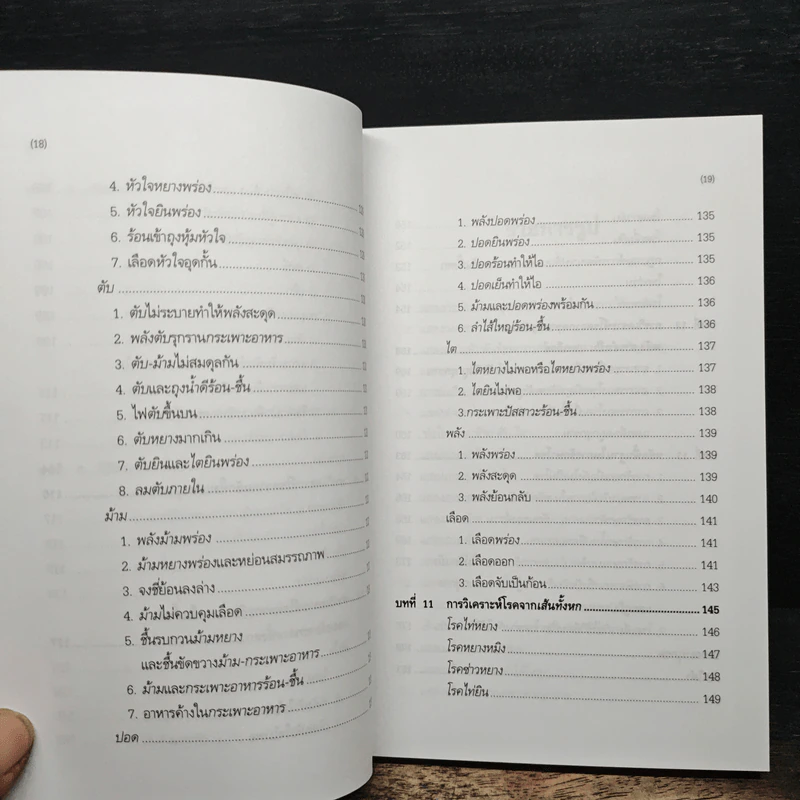 (18)
4. หัวใจหยางพร่อง
5. หัวใจยินพร่อง
6. ร้อนเข้าถุงหุ้มหัวใจ
7. เลือดหัวใจอุดกั้น
ตับ
1. ตับไม่ระบายทำให้พลังสะดุด
2. พลังตับรุกรานกระเพาะอาหาร
3. ตับ-ม้ามไม่สมดุลกัน
4. ตับและถุงน้ำดีร้อน-ชื้น
5. ไฟตับขึ้นบน
6. ตับหยางมากเกิน
7. ตับยินและไตยินพร่อง
8. ลมตับภายใน
ม้าม
1. พลังม้ามพร่อง
2. ม้ามหยางพร่องและหย่อนสมรรถภาพ
3. จงชี่ย้อนลงล่าง
4. ม้ามไม่ควบคุมเลือด
5. ชื้นรบกวนม้ามหยาง
และชื้นขัดขวางม้าม-กระเพาะอาหาร
6. ม้ามและกระเพาะอาหารร้อน-ชื้น
7. อาหารค้างในกระเพาะอาหาร
ปอด
(19)
1. พลังปอดพร่อง 135
2. ปอดยินพร่อง 135
3. ปอดร้อนทำให้ไอ 136
4. ปอดเย็นทำให้ไอ 136
5. ม้ามและปอดพร่องพร้อมกัน 136
6. ลำไส้ใหญ่ร้อน-ชื้น 136
ไต 137
1. ไตหยางไม่พอหรือไตหยางพร่อง 137
2. ไตยินไม่พอ 138
3.กระเพาะปัสสาวะร้อน-ชื้น 138
พลัง 139
1. พลังพร่อง 139
2. พลังสะดุด 139
3. พลังย้อนกลับ 140
เลือด 141
1. เลือดพร่อง 141
2. เลือดออก 141
3. เลือดจับเป็นก้อน 143
บทที่ 11 การวิเคราะห์โรคจากเส้นทั้งหก 145
โรคไท่หยาง 146
โรคหยางหมิง 147
โรคซ่าวหยาง 148
โรคไท่ยิน 149